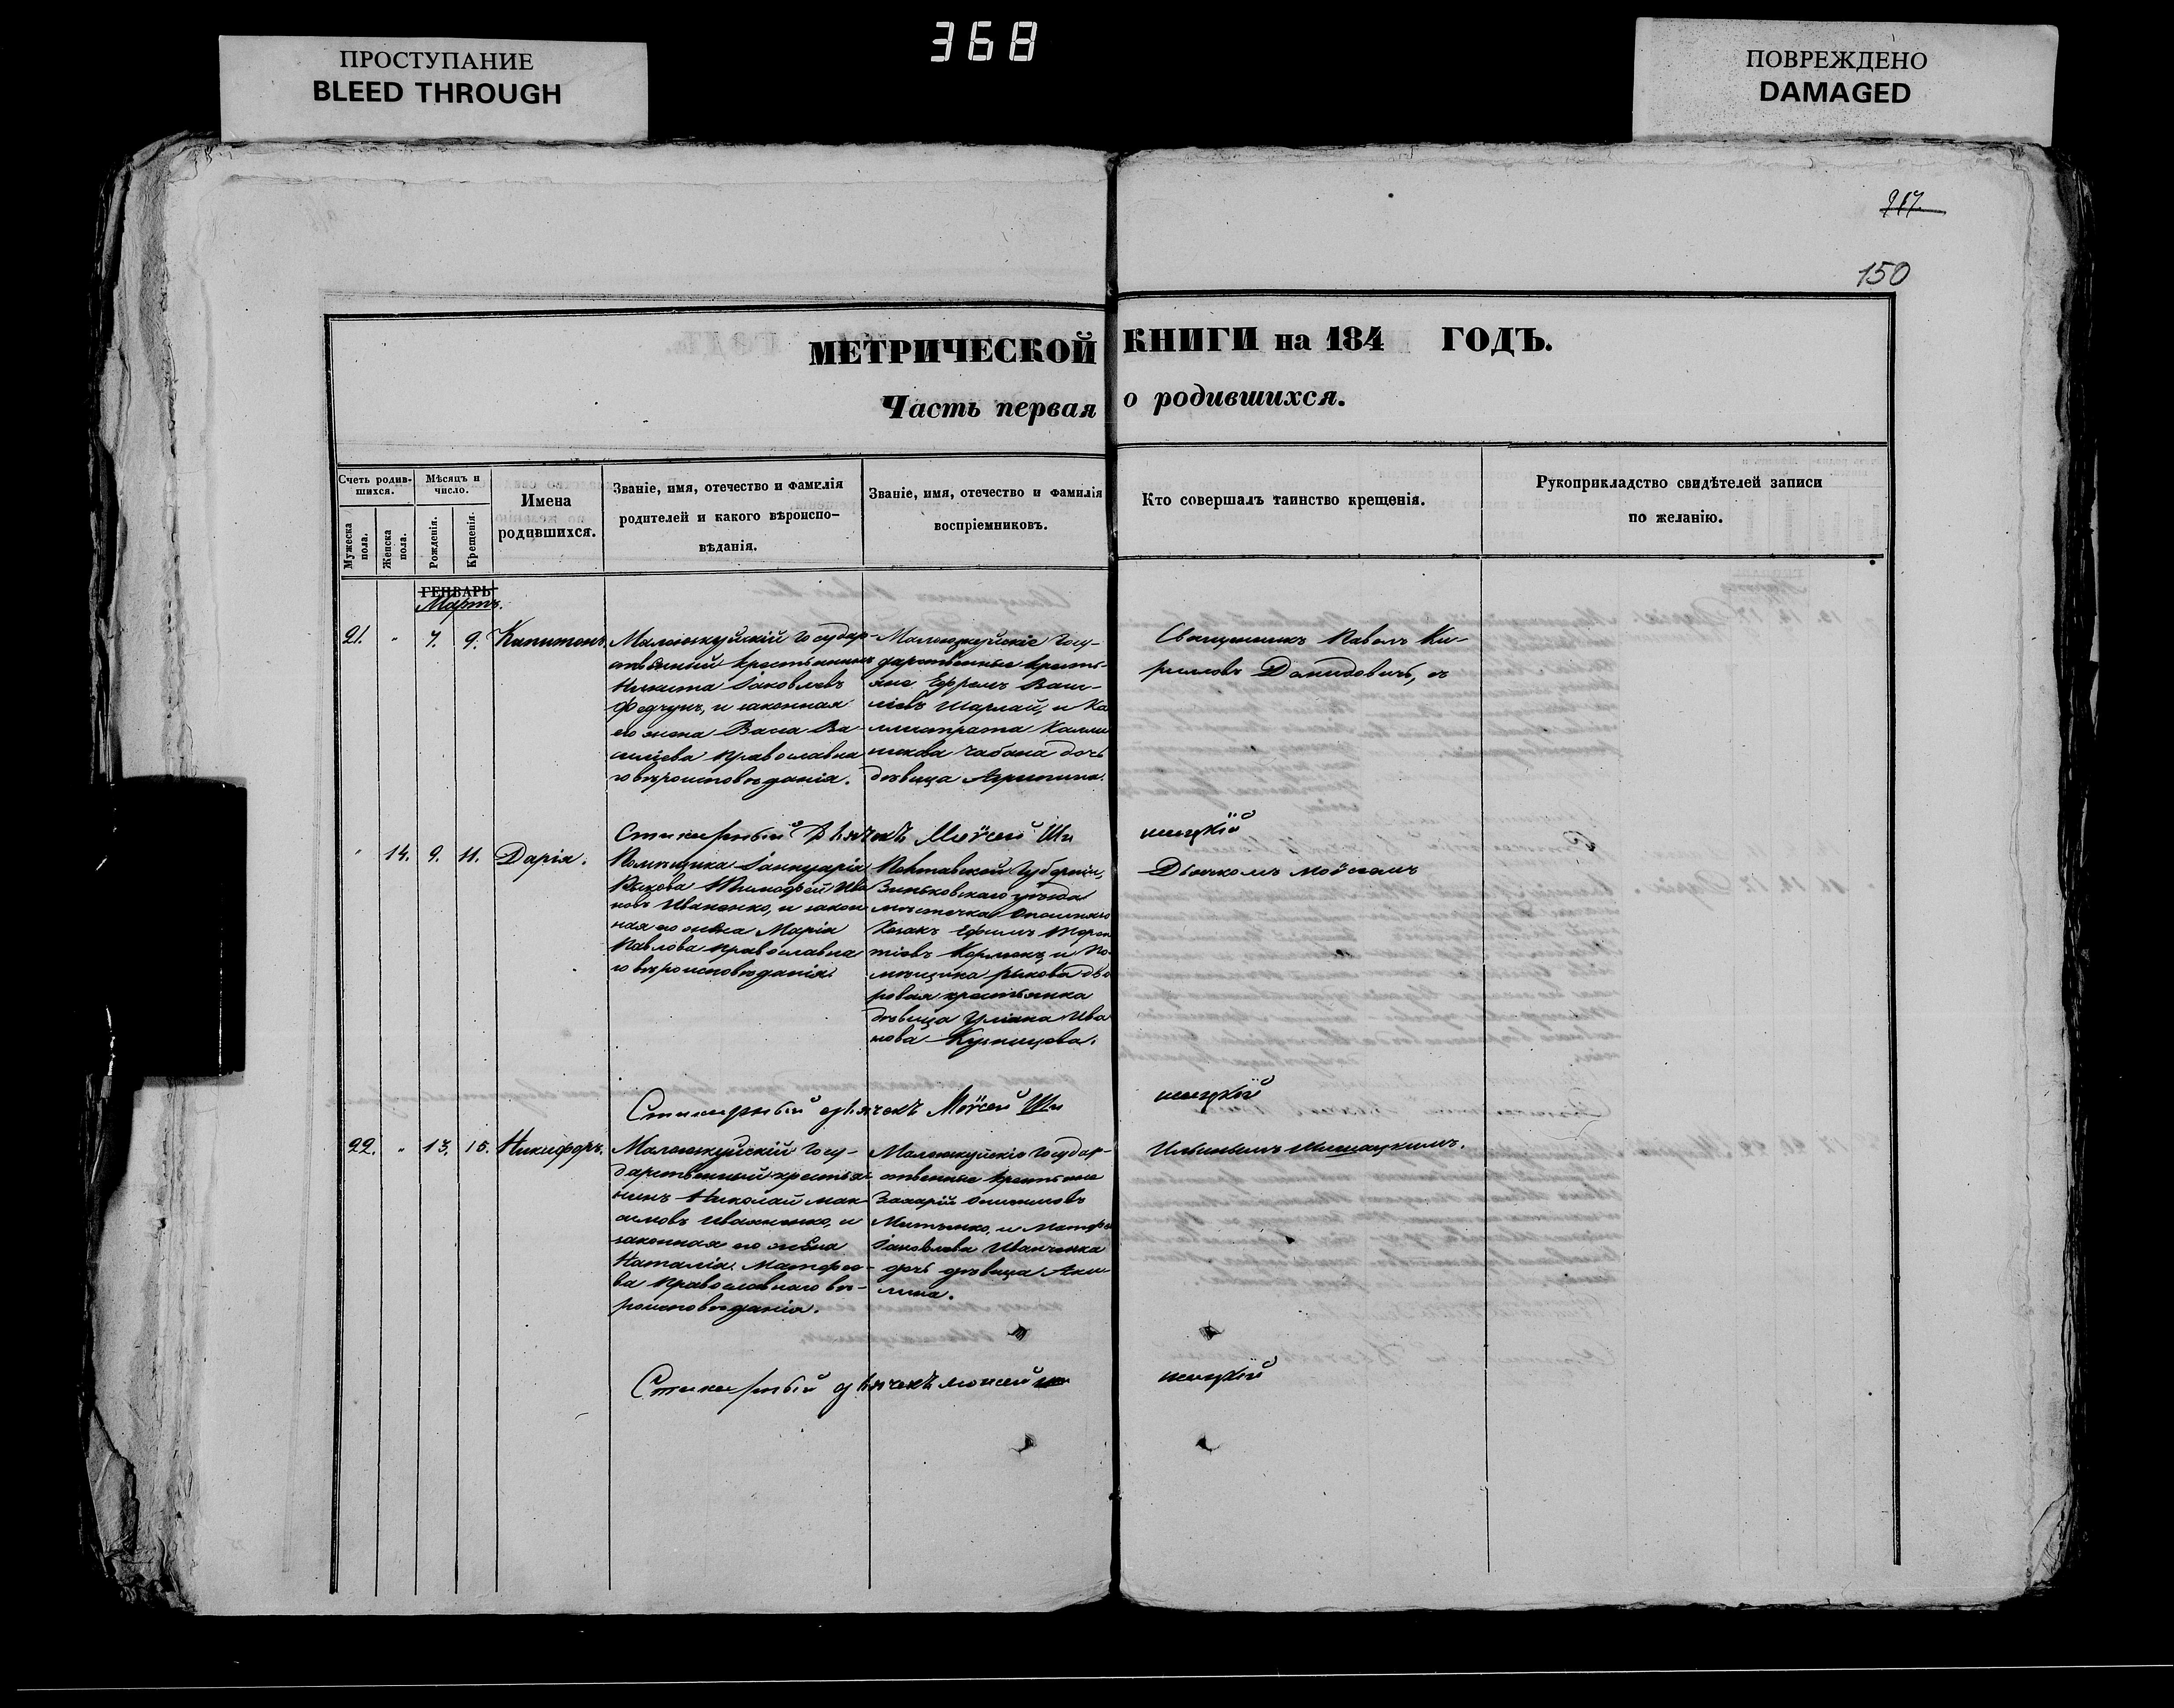 368
ПРОСТУПАНИЕ
BLEED THROUGH
ПОВРЕЖДЕНО
DAMAGED
150
МЕТРИЧЕСКОЙ КНИГИ на 184 ГОДЪ.
Часть первая о родившихся.
Счетъ родив-
шихся.
Мужеска
пола.
Женска
пола.
Мѣсяцъ и
число.
Рожденія.
Крещенія.
Имена
родившихся.
Званіе, имя, отечество и фамилія
родителей и какого вѣроиспо-
вѣданія.
Званіе, имя, отечество и фамилія
воспріемниковъ.
Кто совершалъ таинство крещенія.
Рукоприкладство свидѣтелей записи
по желанію.
ГЕНВАРЬ
Мартъ.
21. " 7. 9. Капитонъ.
государ-
ственный крестьянинъ
Никита Іаковлевъ
Федчунъ, и законная
его жена Васса Ва-
силіева православна
го вѣроисповѣданія.
госу-
дарственные кресть-
яне Ефремъ Васи-
ліевъ Шарлай, и Ка
ллистрата
чабана дочь
дѣвица Агрипина.
Священникъ Павелъ Ки-
риловъ Демидовичъ, съ
Стихарный Дьячекъ Моѵсей Ши
шацкій
" 14. 9. 11. Дарія.
Помѣщика Іаннуарія
Рыкова Тимофей Ива
новъ Иваненко, и закон
ная его жена Марія
Павлова православна
го вѣроисповѣданія.
Полтавской Губерніи,
Зиньковскаго уѣзда
мѣстечка Опошняго
Козакъ Ефимъ Терен
тіевъ и По-
мѣщика Рыкова дво
ровая крестьянка
дѣвица Уліана Ива
нова Кузницова.
Дьячкомъ Моѵсеемъ
Стихарный дьячекъ Моѵсей Ши
шацкій
22. " 13. 15. Никифоръ.
госу-
дарственный крестья
нинъ Николай Мак-
симовъ Иваненко, и
законная его жена
Наталія Матфее-
ва православнаго вѣ-
роисповѣданія.
государ-
ственные крестьяне
Захарій
и Матфея
Іаковлева Иванченка
дочь дѣвица Аки-
лина.
Ильинымъ Шишацкимъ.
Стихарный дьячекъ моисей ши
шацкій